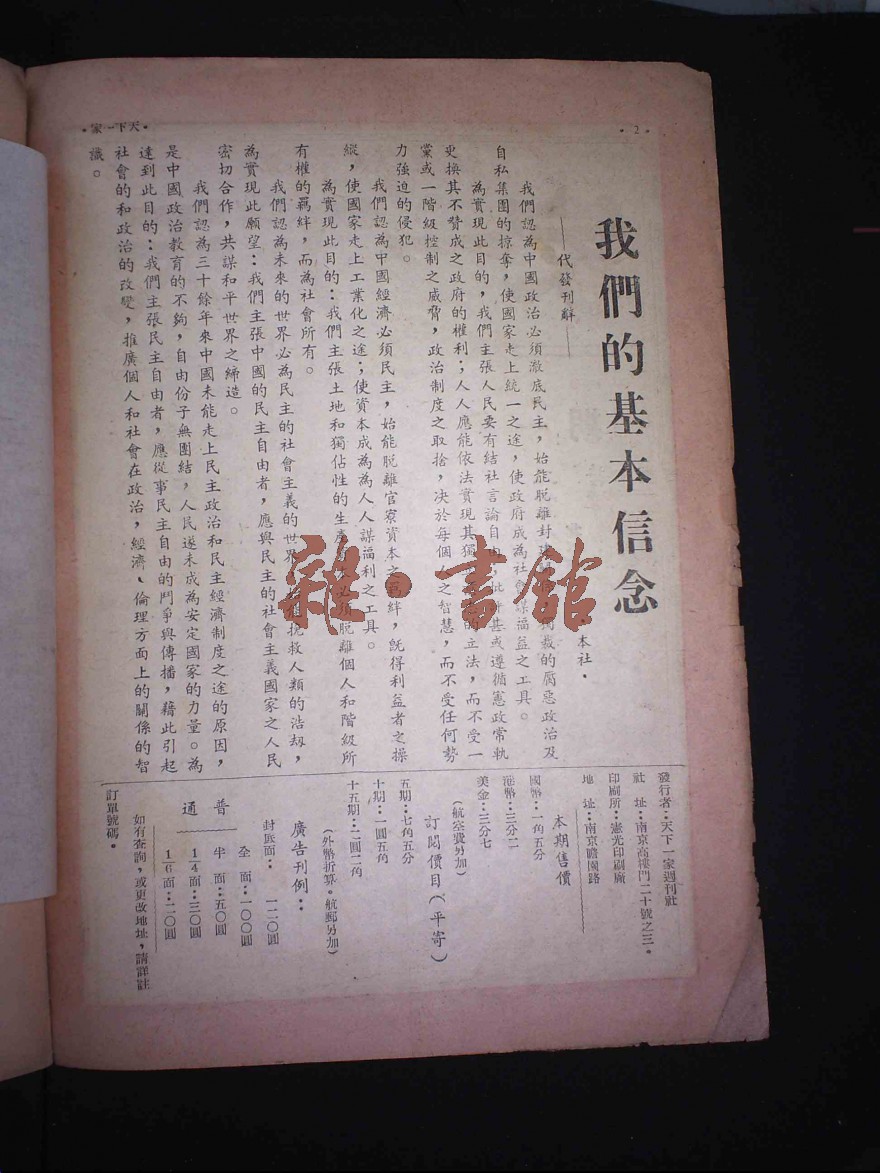 •2•
•天下一家•
我們的基本信念
——代發刊辭——
•本社•
我們認為中國政治必須澈底民主，始能脫離封建獨裁的腐惡政治及
自私集團的掠奪，使國家走上統一之途，使政府成為社會謀福益之工具。
為實現此目的，我們主張人民要有結社言論自由，批評甚或遵循憲政常軌
更換其不贊成之政府的權利；人人應能依法實現其獨的立法，而不受一
黨或一階級控制之威脅，政治制度之取捨，決於每個人之智慧，而不受任何勢
力強迫的侵犯。
我們認為中國經濟必須民主，始能脫離官寮資本之羈絆，既得利益者之操
縱，使國家走上工業化之途；使資本成為為人人謀福利之工具。
為實現此目的：我們主張土地和獨佔性的生產必須脫離個人和階級所
有權的羈絆，而為社會所有。
我們認為未來的世界必為民主的社會主義的世界，挽救人類的浩刼，
為實現此願望：我們主張中國的民主自由者，應與民主的社會主義國家之人民
密切合作，共謀和平世界之締造。
我們認為三十餘年來中國未能走上民主政治和民主經濟制度之途的原因，
是中國政治教育的不夠，自由份子無團結，人民遂未成為安定國家的力量。為
達到此目的：我們主張民主自由者，應從事民主自由的鬥爭與傳播，藉此引起
社會的和政治的改變，推廣個人和社會在政治，經濟、倫理方面上的關係的智
識。
發行者：天下一家週刊社
社 址：南京高樓門二十號之三。
印刷所：憲光印刷廠
地 址：南京瞻園路
本期售價
國幣：一角五分
港幣：三分二
美金：三分七
（航空費另加）
訂閱價目（平寄）
五期：七角五分
十期：一圓五角
十五期：二圓二角
（外幣折算。航郵另加）
廣告刊例：
封底面： 一二〇圓
普通
全 面：一〇〇圓
半 面：五〇圓
1/4面：三〇圓
1/6面：二〇圓
如有查詢，或更改地址，請詳註
訂單號碼。
雜·書館